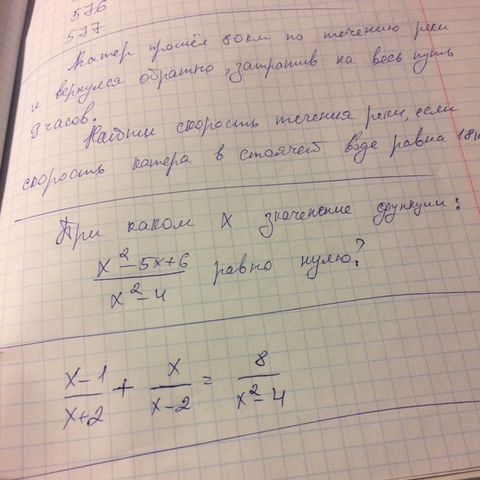 576
577
Катер прошёл 80км по течению реки
и вернулся обратно, затратив на весь путь
9 часов.
Найти скорость течения реки, если
скорость катера в стоячей воде равна 18к
При каком X значение функции:
x²-5x+6
x²-4
равно нулю?
x-1 / x+2 + x / x-2 = 8 / x²-4